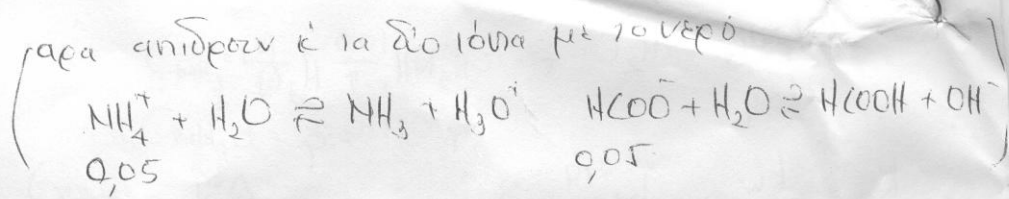 (αρα αντιδρουν κ τα δύο ιόντα με το νερό
NH₄⁺ + H₂O ⇌ NH₃ + H₃O⁺ HCOO⁻ + H₂O ⇌ HCOOH + OH⁻)
0,05 0,05